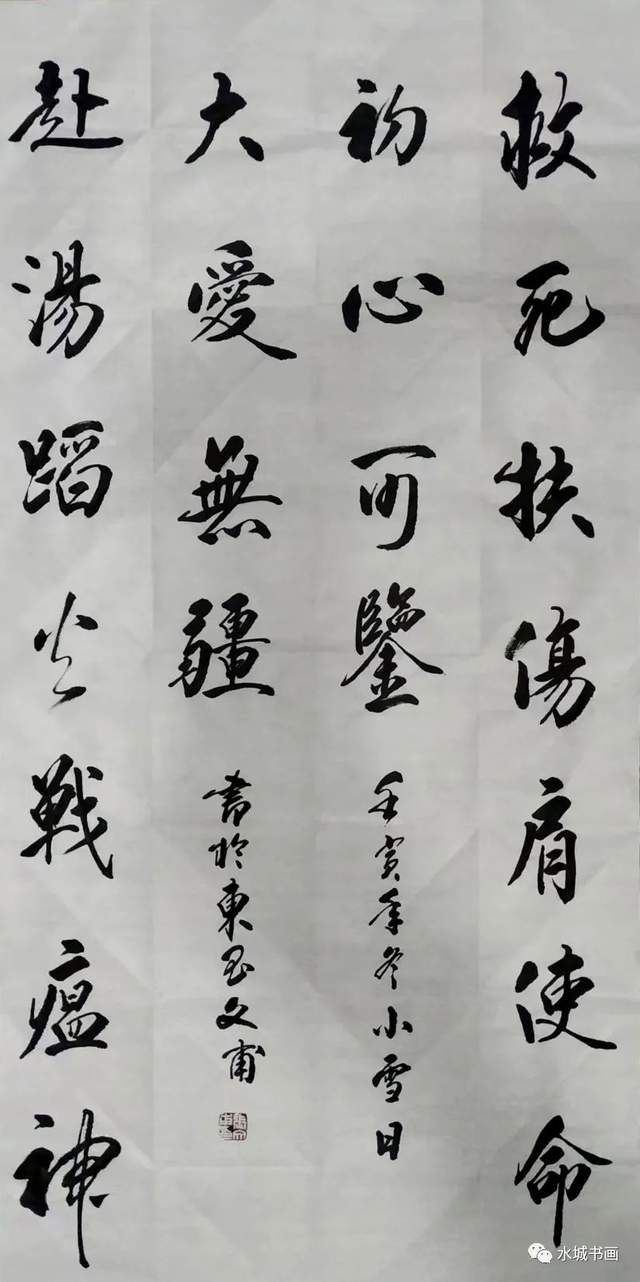 救死扶傷肩使命
初心可鑒
赴湯蹈火戰瘟神
大愛無疆
壬寅年冬小雪日
書於東昌文甫
水城书画